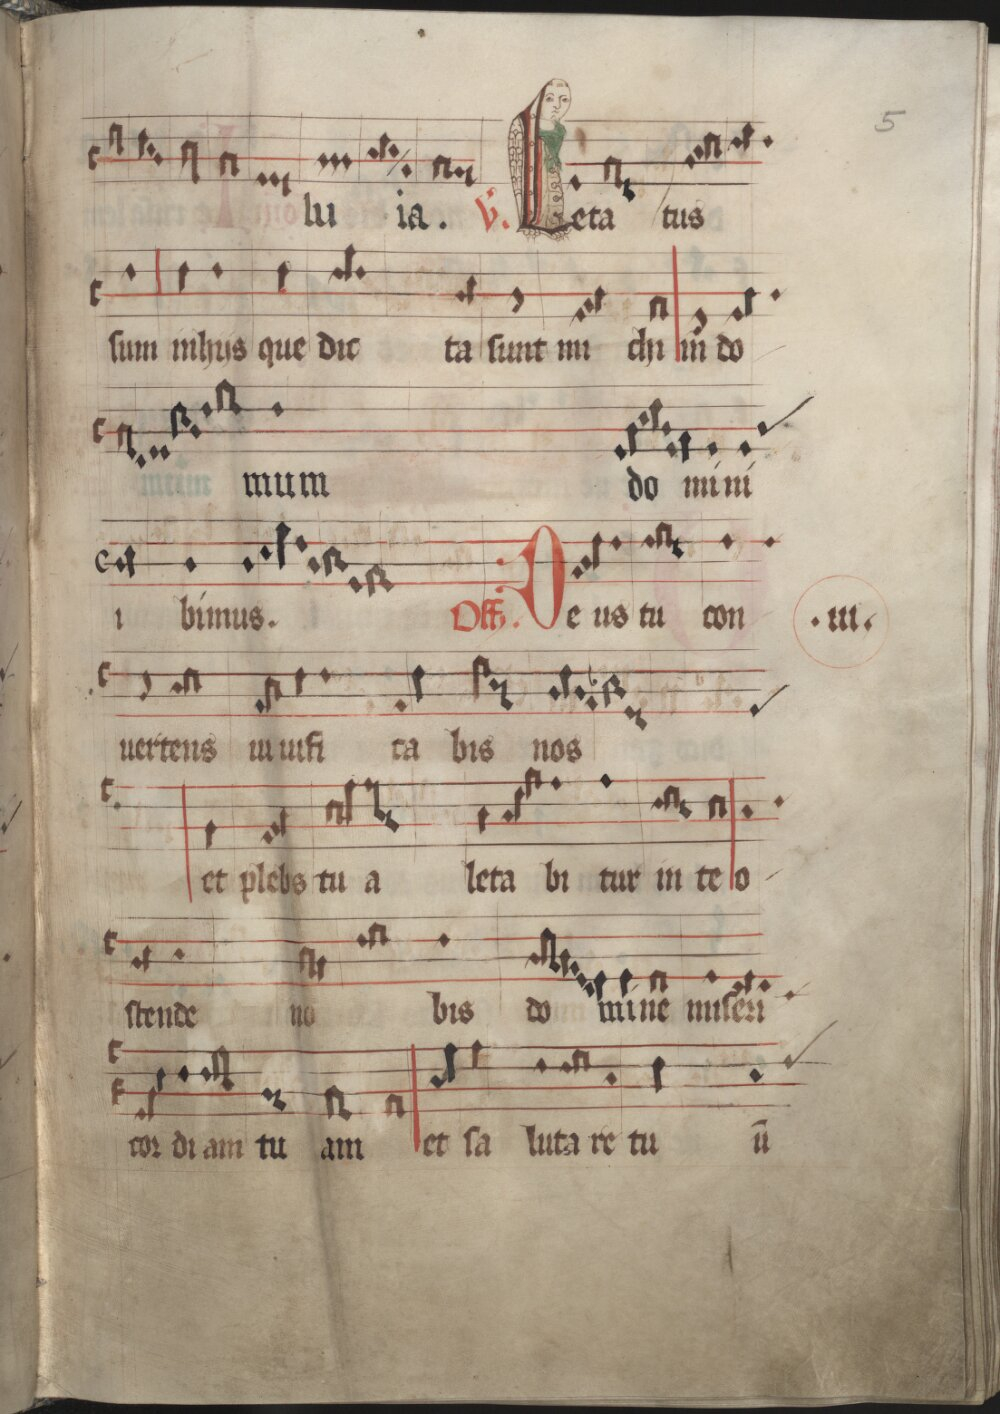 5
lu ia. V. Leta tus
sum in hijs que dic ta sunt mi chi in do
mum do mini
i bimus. Off. De us tu con .iii.
uertens uiuifi ca bis nos
et plebs tu a leta bi tur in te o
stende no bis do mine miseri
cor di am tu am et sa luta re tu ū